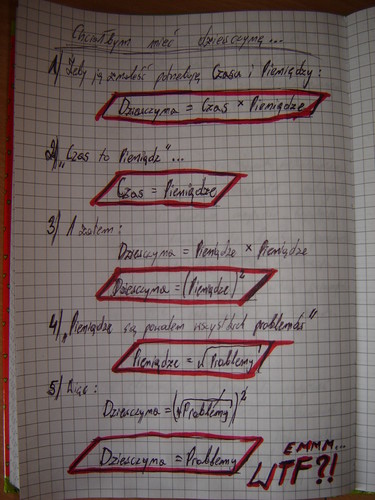 Chciałbym mieć dziewczynę...
1) Żeby ją znaleść potrzebuję Czasu i Pieniędzy:
Dziewczyna = Czas × Pieniądze
2) „Czas to Pieniądz"...
Czas = Pieniądze
3) A zatem:
Dziewczyna = Pieniądze × Pieniądze
Dziewczyna = (Pieniądze)²
4) „Pieniądze są powodem wszystkich problemów"
Pieniądze = √Problemy
5) Więc:
Dziewczyna = (√Problemy)²
Dziewczyna = Problemy
EMMM...
WTF?!